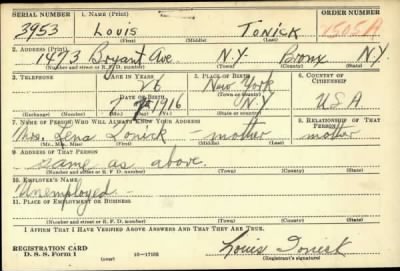 SERIAL NUMBER 1. NAME (Print) ORDER NUMBER
3953 LOUIS TONICK 1505A
(First) (Middle) (Last)
2. ADDRESS (Print)
1473 Bryant Ave. N.Y. Bronx N.Y.
(Number and street or R. F. D. number) (Town) (County) (State)
3. TELEPHONE 4. AGE IN YEARS 5. PLACE OF BIRTH 6. COUNTRY OF CITIZENSHIP
26 New York
DATE OF BIRTH (Town or county)
1916 N.Y U.S.A
(Exchange) (Number) (Mo.) (Day) (Yr.) (State or country)
7. NAME OF PERSON WHO WILL ALWAYS KNOW YOUR ADDRESS 8. RELATIONSHIP OF THAT PERSON
Mrs. Lena Tonick - mother mother
(Mr., Mrs., Miss) (First) (Middle) (Last)
9. ADDRESS OF THAT PERSON
same as above.
(Number and street or R. F. D. number) (Town) (County) (State)
10. EMPLOYER'S NAME
Unemployed -
11. PLACE OF EMPLOYMENT OR BUSINESS
(Number and street or R. F. D. number) (Town) (County) (State)
I AFFIRM THAT I HAVE VERIFIED ABOVE ANSWERS AND THAT THEY ARE TRUE.
REGISTRATION CARD
D. S. S. Form 1 16-17105 Louis Tonick
(Registrant's signature)